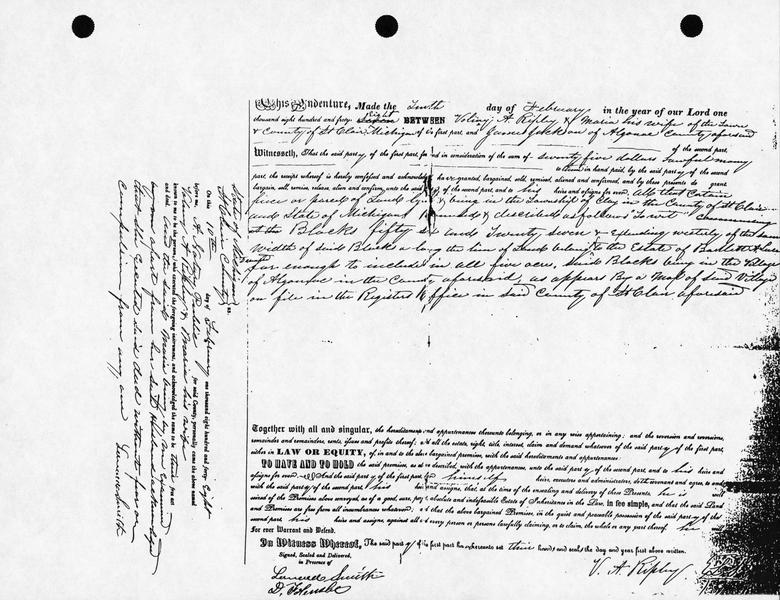 This Indenture, Made the Tenth day of February in the year of our Lord one
thousand eight hundred and forty Eight BETWEEN Volney A Ripley & Maria his wife of the Town
& County of St Clair Michigan of the first part, and of Algonac County aforesaid
of the second part,
Witnesseth, That the said party of the first part, for and in consideration of the sum of seventy five dollars lawful money
to them in hand paid, by the said party of the second
part, the receipt whereof is hereby confessed and acknowledged have granted, bargained, sold, remised, aliened and confirmed, and by these presents do grant
bargain, sell, remise, release, alien and confirm, unto the said party of the second part, and to his heirs and assigns for ever, all that Certain
piece or parcel of Land lying & being in the Township of Clay in the County of St Clair
and State of Michigan & described as follows To wit Commencing
at the Blocks fifty and Twenty seven & Extending westerly of the same
width of said Blocks a long the line of Land belong to the Estate of
far enough to include in all five acres, said Blocks being in the Village
of Algonac in the County aforesaid, as appears By a Map of Said Village
on file in the Registers Office in said County of St Clair aforesaid
Together with all and singular, the hereditaments and appurtenances thereunto belonging, or in any wise appertaining; and the reversion and reversions,
remainder and remainders, rents, issues and profits thereof; All the estate, right, title, interest, claim and demand whatsoever of the said party of the first part,
either in LAW OR EQUITY, of, in and to the above bargained premises, with the said hereditaments and appurtenances:
TO HAVE AND TO HOLD the said premises, as above described, with the appurtenances, unto the said party of the second part, and to his heirs and
assigns for ever. And the said party of the first part for himself heirs, executors and administrators, doth covenant and agree, to and
with the said party of the second part, his heirs and assigns, that at the time of the ensealing and delivery of these Presents, he is well
seized of the Premises above conveyed, as of a good, sure, perfect, absolute and indefeasible Estate of Inheritance in the Law, in fee simple, and that the said Land
and Premises are free from all incumbrances whatever; And that the above bargained Premises, in the quiet and peaceable possession of the said party of the
second part, his heirs and assigns, against all and every person or persons lawfully claiming, or to claim, the whole or any part thereof, he will
For ever Warrant and Defend.
In Witness Whereof, The said party of the first part has hereunto set their hands and seals, the day and year first above written.
Signed, Sealed and Delivered,
in Presence of
Smith
D.
V. A Ripley
State of Michigan
St Clair County ss.
On this 10th day of February one thousand eight hundred and forty-eight
before me, A Notary Public for said County, personally came the above named
Volney A Ripley & Maria his wife
known to me to be the persons who executed the foregoing instrument, and acknowledged the same to be their free act
and deed. And the said Maria being by me examined
separate & apart from her said Husband acknowledged
that she executed said deed without fear or
compulsion from any one
Smith